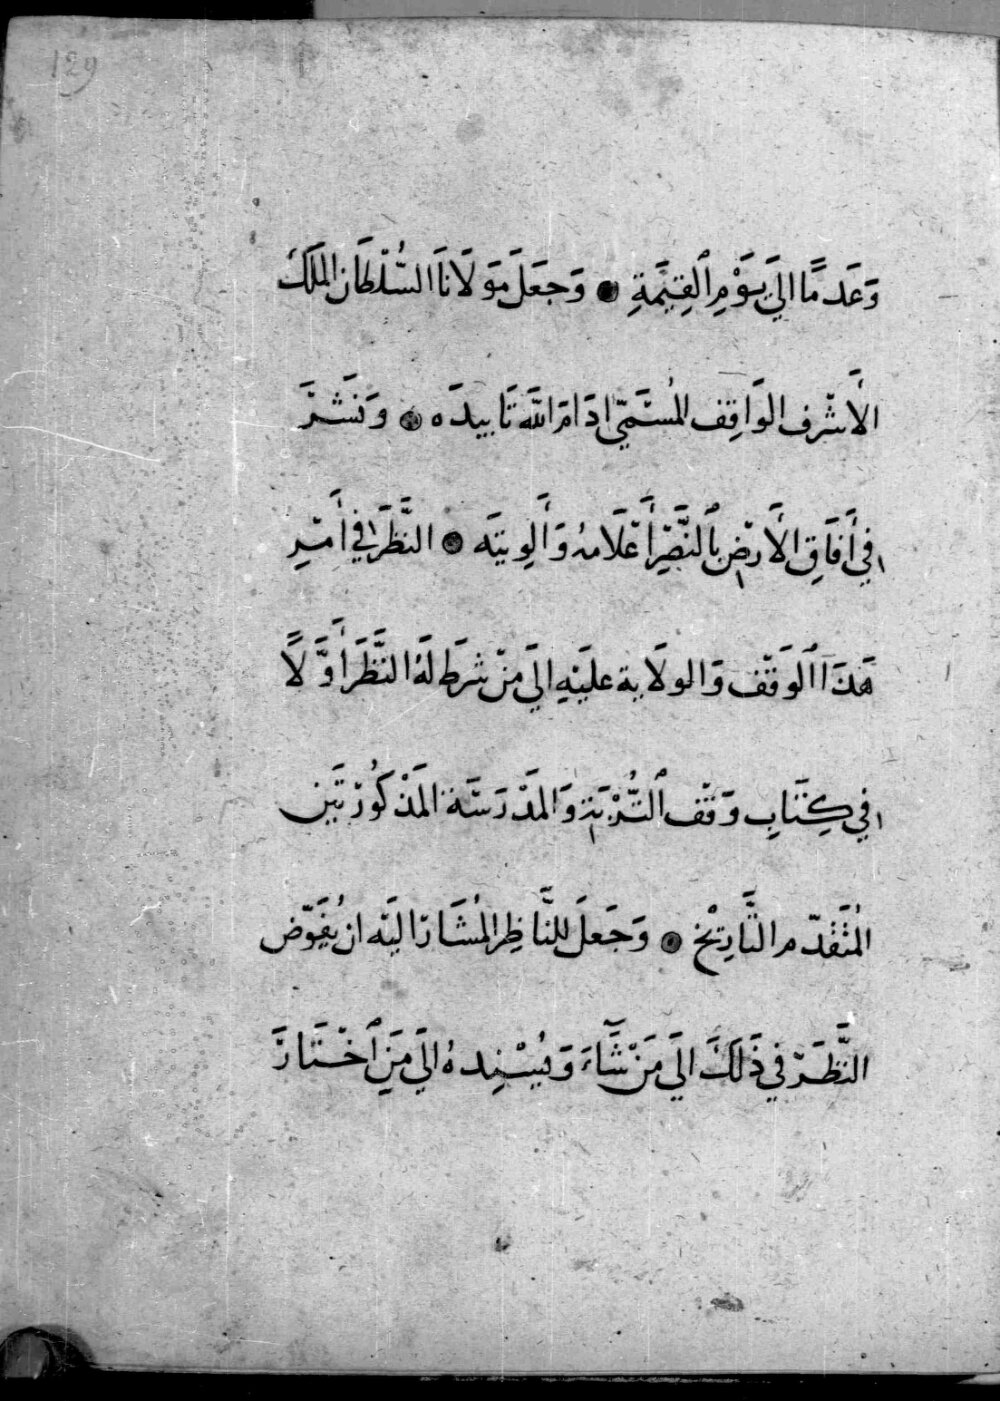 129
وَعَدَمًا الَي يَوْمِ ٱلقِيٰمَةِ ● وَجَعَلَ مَولَانَا السُّلْطَان المَلَكُ
الأَشْرف الوَاقِف المُسَمَّي ادَامَ اللَّه تَاييدَه ● وَنَشَرَ
في أَفَاقِ الأَرْضِ بٱلنَّصْرِ أَعْلَامهُ وَأَلوِيتَه ● النَّظَرَ في أَمْرِ
هَذَا ٱلوَقْف وَالولَاية عليَهِ الَي مَنْ شرَط لَهُ النَّظَرَ أَوَّلًا
في كِتَابِ وَقْف ٱلتُّرْبَةِ وَالمَدْرَسَة المَذكُورتَين
المُتَقَدّم التَّارِيْخ ● وَجَعَلَ للنَّاظِر المُشَار اليَه ان يُفَوّض
النَّظَرَ في ذَلكَ الَي مَنْ شَآءَ وَيُسْنِدهُ الَي مَنِ ٱخْتَارَ